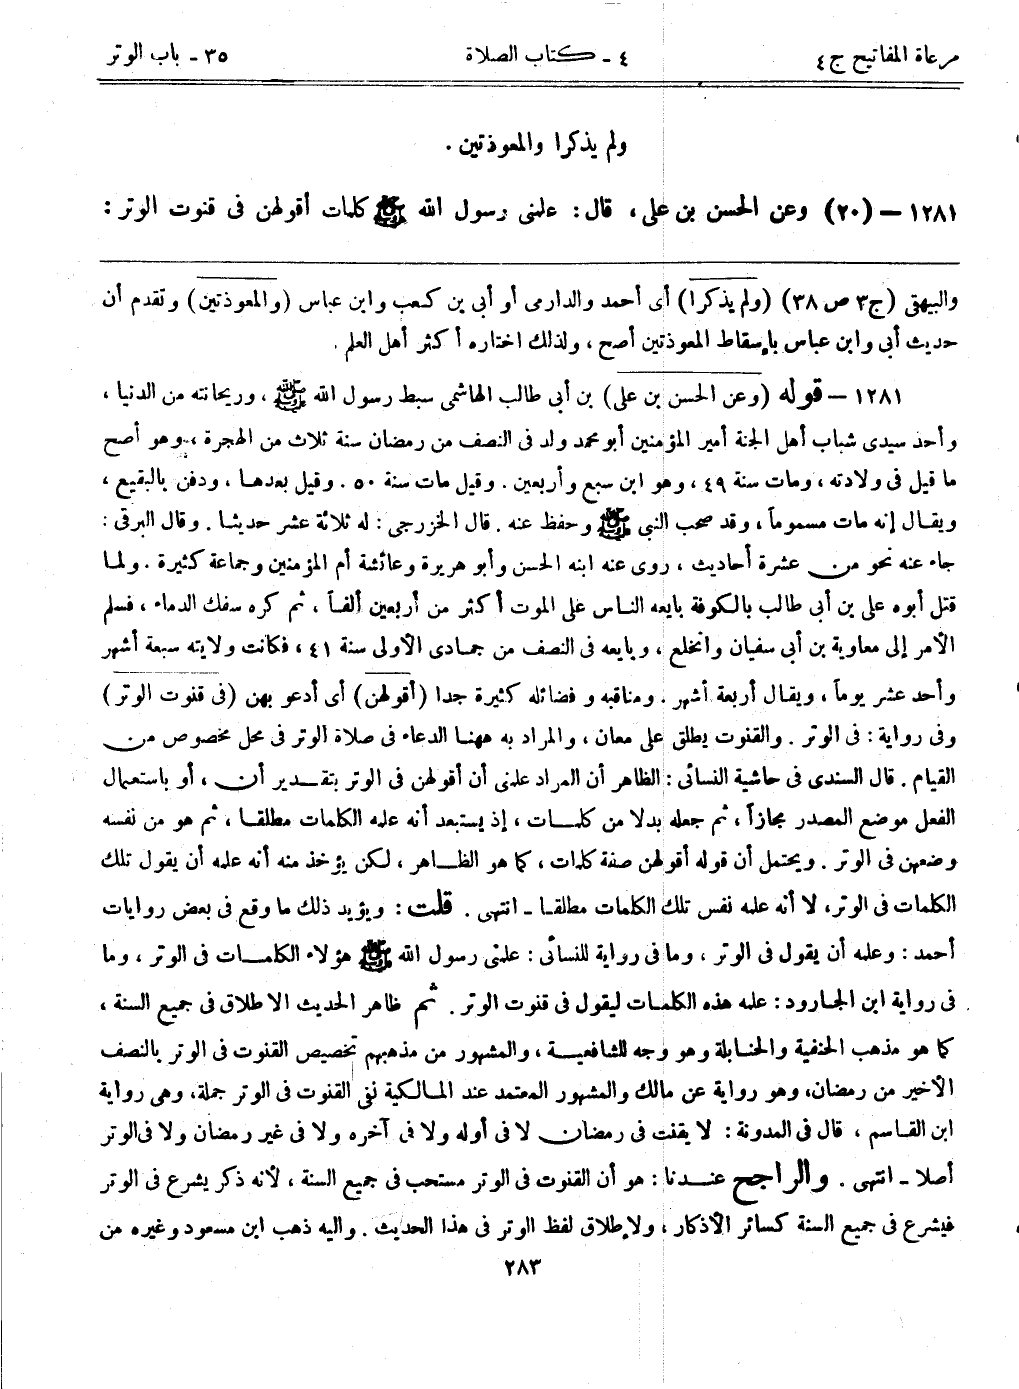 مرعاة المفاتيح ج٤
٤ ـ كتاب الصلاة
٣٥ ـ باب الوتر
ولم يذكرا والمعوذتين .
١٢٨١ – (٢٠) وعن الحسن بن على، قال: علمنى رسول الله ﷺ كلمات أقولهن فى قنوت الوتر:
والبيهقى (ج٣ ص ٣٨) (ولم يذكرا) أى أحمد والدارمى أو أبى بن كعب وابن عباس (والمعوذتين) وتقدم أن
حديث أبى وابن عباس بإسقاط المعوذتين أصح ، ولذلك اختاره أكثر أهل العلم .
١٢٨١ – قوله (وعن الحسن بن على) بن أبى طالب الهاشمى سبط رسول الله ﷺ ، وريحانته من الدنيا ،
وأحد سيدى شباب أهل الجنة أمير المؤمنين أبو محمد ولد فى النصف من رمضان سنة ثلاث من الهجرة ، وهو أصح
ما قيل فى ولادته ، ومات سنة ٤٩ ، وهو ابن سبع وأربعين . وقيل مات سنة ٥٠ . وقيل بعدها ، ودفن بالبقيع ،
ويقال إنه مات مسموماً ، وقد صحب النبى ﷺ وحفظ عنه . قال الخزرجى : له ثلاثة عشر حديثا . وقال البرقى :
جاء عنه نحو من عشرة أحاديث ، روى عنه ابنه الحسن وأبو هريرة وعائشة أم المؤمنين وجماعة كثيرة . ولما
قتل أبوه على بن أبى طالب بالكوفة بايعه الناس على الموت أكثر من أربعين ألفاً ، ثم كره سفك الدماء ، فسلم
الأمر إلى معاوية بن أبى سفيان وانخلع ، وبايعه فى النصف من جمادى الأولى سنة ٤١ ، فكانت ولايته سبعة أشهر
وأحد عشر يوماً ، ويقال أربعة أشهر . ومناقبه و فضائله كثيرة جدا (أقولهن) أى أدعو بهن (فى قنوت الوتر)
وفى رواية : فى الوتر . والقنوت يطلق على معان ، والمراد به ههنا الدعاء فى صلاة الوتر فى محل مخصوص من
القيام . قال السندى فى حاشية النسائى : الظاهر أن المراد علمنى أن أقولهن فى الوتر بتقدير أن ، أو باستعمال
الفعل موضع المصدر مجازاً ، ثم جعله بدلا من كلمات ، إذ يستبعد أنه علمه الكلمات مطلقا ، ثم هو من نفسه
وضعهن فى الوتر . ويحتمل أن قوله أقولهن صفة كلمات ، كما هو الظاهر ، لكن يؤخذ منه أنه علمه أن يقول تلك
الكلمات فى الوتر، لا أنه علمه نفس تلك الكلمات مطلقا ـ انتهى . قلت : ويؤيد ذلك ما وقع فى بعض روايات
أحمد : وعلمه أن يقول فى الوتر ، وما فى رواية للنسائى : علمنى رسول الله ﷺ هؤلاء الكلمات فى الوتر ، وما
فى رواية ابن الجارود : علمه هذه الكلمات ليقول فى قنوت الوتر . ثم ظاهر الحديث الاطلاق فى جميع السنة ،
كما هو مذهب الحنفية والحنابلة وهو وجه للشافعية ، والمشهور من مذهبهم تخصيص القنوت فى الوتر بالنصف
الأخير من رمضان، وهو رواية عن مالك والمشهور المعتمد عند المالكية نفى القنوت فى الوتر جملة، وهى رواية
ابن القاسم ، قال فى المدونة : لا يقنت فى رمضان لا فى أوله ولا فى آخره ولا فى غير رمضان ولا فى الوتر
أصلا ـ انتهى . والراجح عندنا : هو أن القنوت فى الوتر مستحب فى جميع السنة ، لأنه ذكر يشرع فى الوتر
فيشرع فى جميع السنة كسائر الأذكار ، ولإطلاق لفظ الوتر فى هذا الحديث . واليه ذهب ابن مسعود وغيره من
٢٨٣